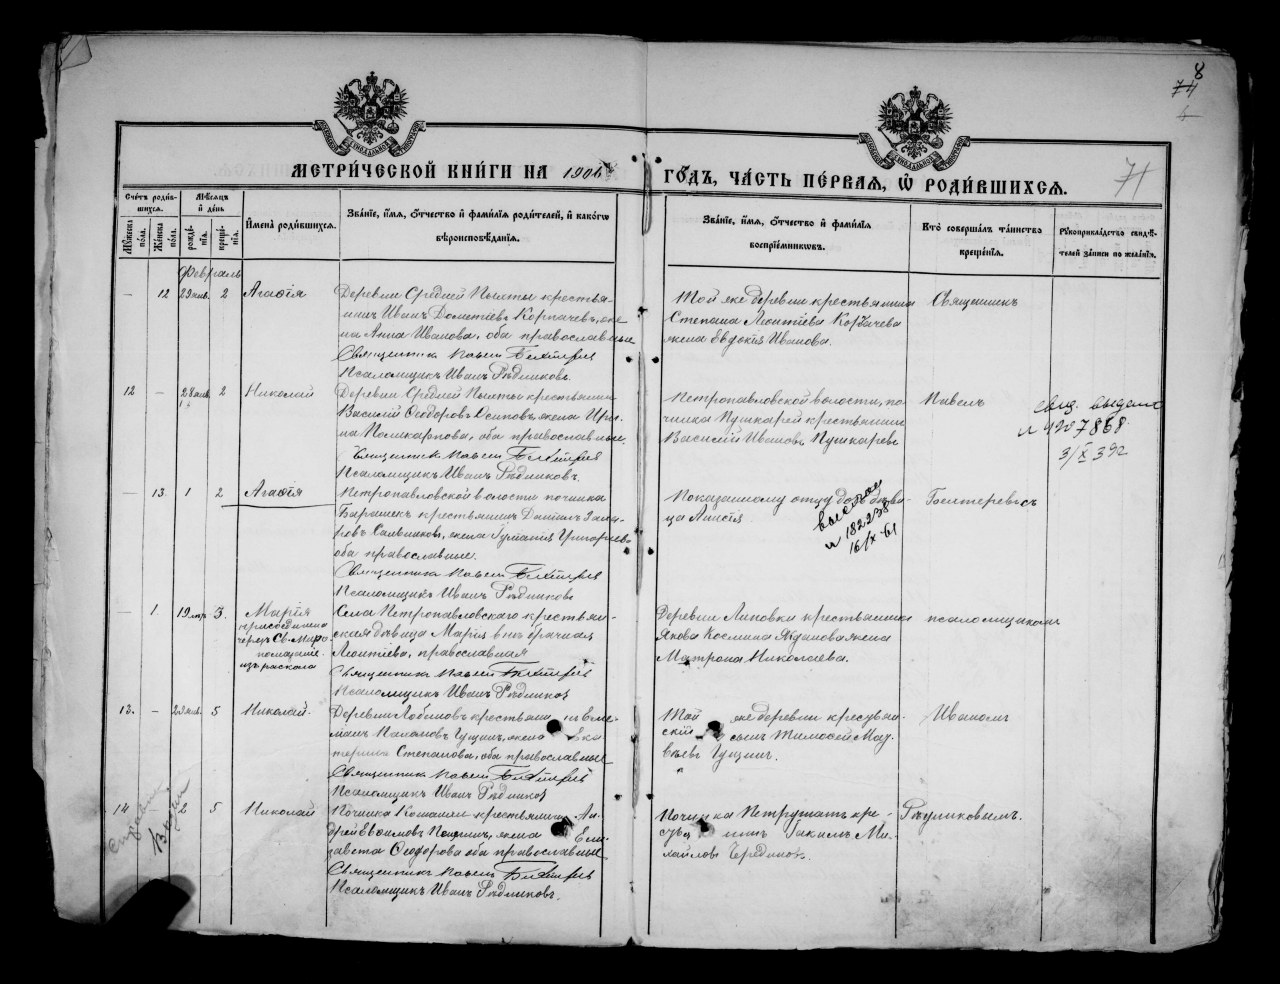 8
74
4
71
МЕТРИ́ЧЕСКОЙ КНИ́ГИ НА 190 ГО́ДЪ, ЧА́СТЬ ПЕ́РВАЯ, Ѡ РОДИ́ВШИХСЯ.
Счетъ роди́вшихся.
Му́жеска пола.
Же́нска пола.
Мѣсяцъ и день
рожде́нія.
креще́нія.
Имена́ роди́вшихся.
Зва́ніе, и́мя, о́тчество и фами́лія роди́телей, и како́гѡ
вѣроисповѣ́данія.
Зва́ніе, и́мя, о́тчество и фами́лія
воспріе́мниковъ.
Кто̀ соверша́лъ та́инство
креще́нія.
Рукоприкла́дство свидѣ́телей за́писи по жела́нію.
Февраль
— 12 29 янв. 2 Агафія
Деревни Средней Пышты крестья-
нинъ Иванъ Дометіевъ Корпачевъ, же-
на Анна Иванова, оба православные
Священникъ Павелъ
Псаломщикъ Иванъ Рѣдниковъ.
Той же деревни крестьянина
Степана Леонтіева Корпачева
жена Евдокія Иванова.
Священникъ
12 — 28 янв. 2 Николай
Деревни Средней Пышты крестьянинъ
Василій Ѳеодоровъ Осиповъ, жена Ири-
на Поликарпова, оба православные.
Священникъ Павелъ
Псаломщикъ Иванъ Рѣдниковъ.
Петропавловской волости, по-
чинка Пушкарей крестьянинъ
Василій Ивановъ Пушкаревъ
Павелъ
свид. выдано
3/X 39г
— 13. 1 2 Агафія
Петропавловской волости починка
крестьянинъ Даніилъ Заха-
ровъ Сальниковъ, жена Григорьева
оба православные.
Священникъ Павелъ
Псаломщикъ Иванъ Рѣдниковъ
Показанному отцу дочь дѣви-
ца
№ 182238
16/X-61
— 1. 19 3. Марія
присоединена
чрезъ Св. Миро-
помазаніе
изъ раскола
Села Петропавловскаго крестьян-
ская дѣвица Марія внѣбрачная
Леонтіева, православная
Священникъ Павелъ
Псаломщикъ Иванъ Рѣдниковъ
Деревни Липовки крестьянина
Якова Космина жена
Матрона Николаева.
псаломщикомъ
13. — 29 янв. 5 Николай.
Деревни Лобановъ крестьянинъ Еме-
ліанъ Гущинъ, жена Ека-
терина Степанова, оба православные
Священникъ Павелъ
Псаломщикъ Иванъ Рѣдниковъ
Той же деревни
сынъ Тимоѳей Мат-
вѣевъ Гущинъ.
Иваномъ
14 — 2 5 Николай
Починка крестьянинъ Ан-
дрей жена Ели-
завета Ѳеодорова оба православные
Священникъ Павелъ
Псаломщикъ Иванъ Рѣдниковъ.
Починка Петрушатъ кре-
Іакимъ Ми-
хайловъ
Рѣдниковымъ.